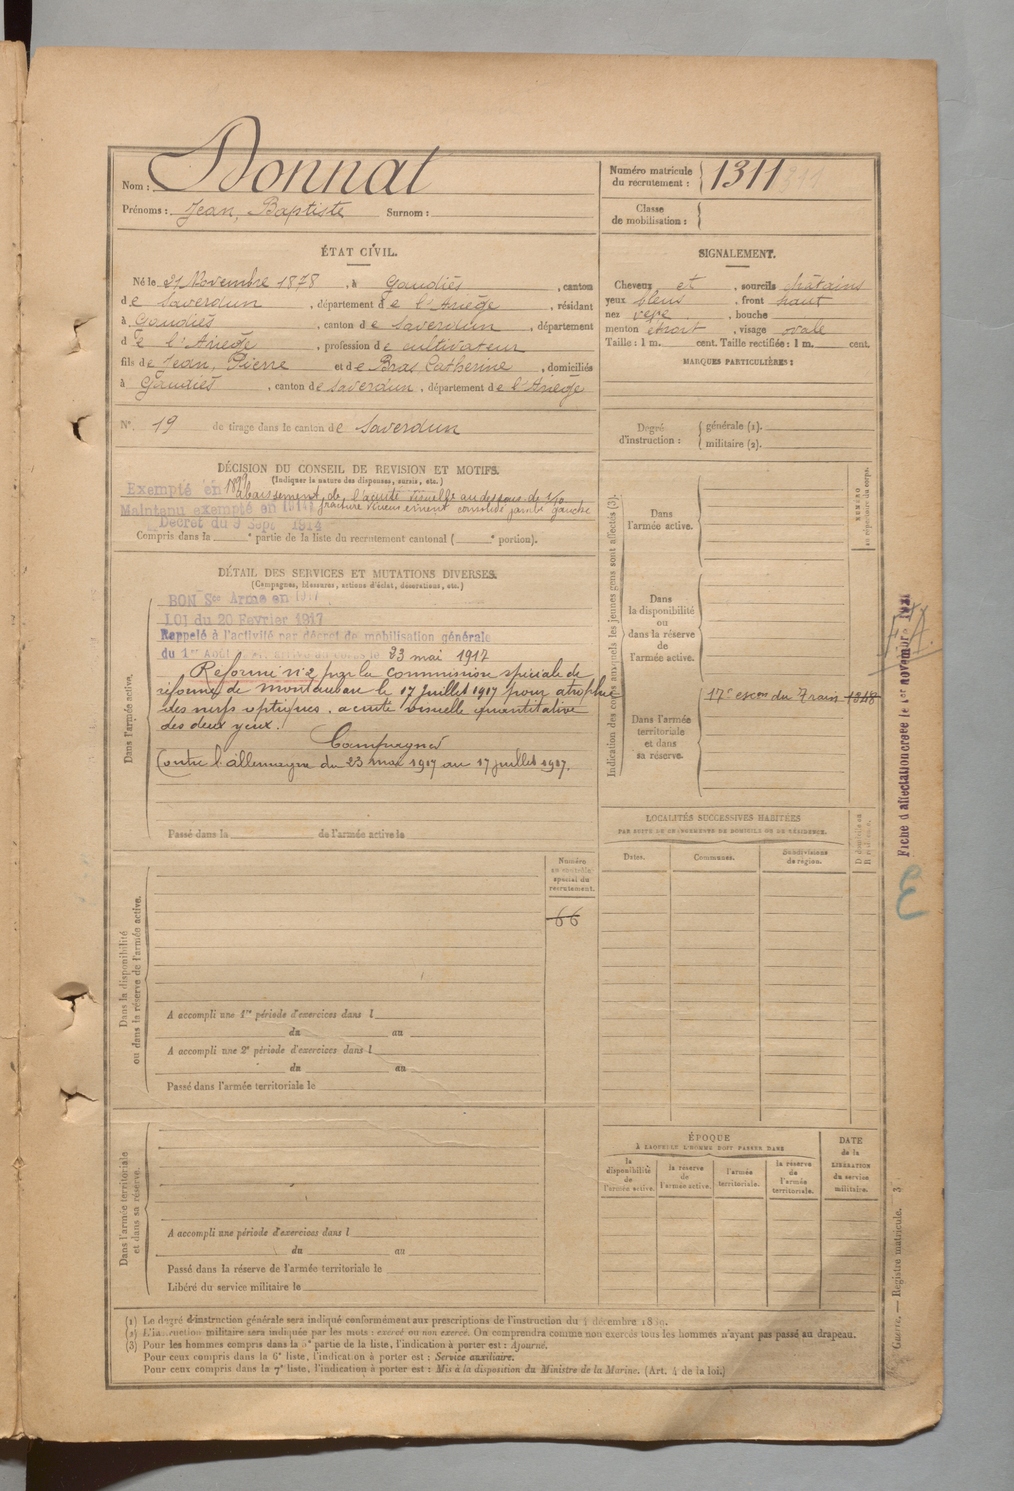 Nom : Donnat
Prénoms : Jean, Baptiste Surnom :
Numéro matricule
du recrutement : 1311
Classe
de mobilisation :
ÉTAT CIVIL.
Né le 21 Novembre 1878, à Gaudiès, canton
de Saverdun, département de l'Ariège, résidant
à Gaudiès, canton de Saverdun, département
de l'Ariège, profession de cultivateur
fils de Jean, Pierre et de Bras Catherine, domiciliés
à Gaudiès, canton de Saverdun, département de l'Ariège
N° 19 de tirage dans le canton de Saverdun
SIGNALEMENT.
Cheveux et, sourcils châtains
yeux bleus, front haut
nez, bouche
menton étroit, visage ovale
Taille : 1 m. cent. Taille rectifiée : 1 m. cent.
MARQUES PARTICULIÈRES :
Degré
d'instruction :
générale (1).
militaire (2).
DÉCISION DU CONSEIL DE REVISION ET MOTIFS.
(Indiquer la nature des dispenses, sursis, etc.)
Exempté en 1899 abaissement de l'acuité visuelle au dessous de
Maintenu exempté en 1914 fracture consolidé jambe gauche
Décret du 9 Sept 1914
Compris dans la e partie de la liste du recrutement cantonal ( e portion).
DÉTAIL DES SERVICES ET MUTATIONS DIVERSES.
(Campagnes, blessures, actions d'éclat, décorations, etc.)
Dans l'armée active.
BON Sce Armé en 1917
LOI du 20 Fevrier 1917
Rappelé à l'activité par décret de mobilisation générale
du 1er Août 23 mai 1917
Réformé n°2 par la commission spéciale de
réforme de montauban le 17 juillet 1917 pour atrophie
des nerfs optiques. acuité visuelle quantitative
des deux yeux.
Campagnes
Contre l'allemagne du 23 mai 1917 au 17 juillet 1917.
Passé dans la de l'armée active le
Indication des corps auxquels les jeunes gens sont affectés (3).
Dans
l'armée active.
Dans
la disponibilité
ou
dans la réserve
de
l'armée active.
Dans l'armée
territoriale
et dans
sa réserve.
17e escon du Train 1848
NUMÉRO
au répertoire du corps.
Fiche d'affectation créée le 1er novembre 1921
3
LOCALITÉS SUCCESSIVES HABITÉES
PAR SUITE DE CHANGEMENTS DE DOMICILE OU DE RÉSIDENCE.
Dates.
Communes.
Subdivisions
de région.
Numéro
au contrôle
spécial du
recrutement.
66
Dans la disponibilité
ou dans la réserve de l'armée active.
A accompli une 1re période d'exercices dans l
du au
A accompli une 2e période d'exercices dans l
du au
Passé dans l'armée territoriale le
Dans l'armée territoriale
et dans sa réserve.
A accompli une période d'exercices dans l
du au
Passé dans la réserve de l'armée territoriale le
Libéré du service militaire le
ÉPOQUE
À LAQUELLE L'HOMME DOIT PASSER DANS
la
disponibilité
de
l'armée active.
la réserve
de
l'armée active.
l'armée
territoriale.
la réserve
de
l'armée
territoriale.
DATE
de la
LIBÉRATION
du service
militaire.
(1) Le degré d'instruction générale sera indiqué conformément aux prescriptions de l'instruction du 4 décembre 1889.
(2) L'instruction militaire sera indiquée par les mots : exercé ou non exercé. On comprendra comme non exercés tous les hommes n'ayant pas passé au drapeau.
(3) Pour les hommes compris dans la 5e partie de la liste, l'indication à porter est : Ajourné.
Pour ceux compris dans la 6e liste, l'indication à porter est : Service auxiliaire.
Pour ceux compris dans la 7e liste, l'indication à porter est : Mis à la disposition du Ministre de la Marine. (Art. 4 de la loi.)
Guerre. — Registre matricule. 3